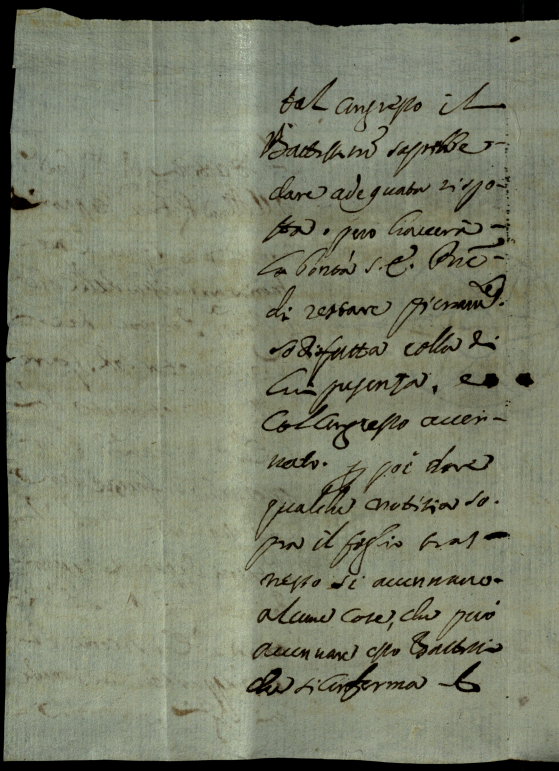 tal congresso il
Battistini saprebbe
dare adeguata rispo-
sta. però
la bontà S. E. Pne
di restare pienam.e
sodisfatta colla di
lui presenza, e
col congresso accen-
nato. poi dare
qualche notitia so-
pra il foglio tras-
messo si accennano
alcune cose, che può
accennare esso Battisti
che si conferma